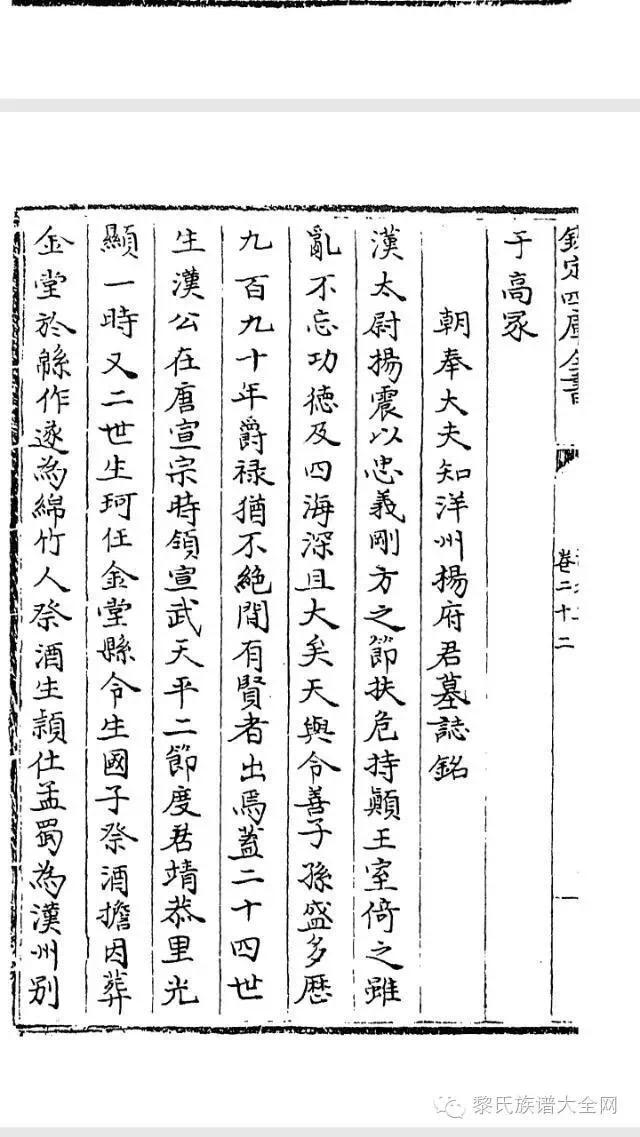 欽定四庫全書
卷二十二
于高冢
朝奉大夫知洋州揚府君墓誌銘
漢太尉揚震以忠義剛方之節扶危持顛王室倚之雖
亂不忘功德及四海深且大矣天與令善子孫盛多歷
九百九十年爵祿猶不絶間有賢者出焉蓋二十四世
生漢公在唐宣宗時領宣武天平二節度居靖恭里光
顯一時又二世生珂任金堂縣令生國子祭酒擔因葬
金堂於緜作遂為綿竹人祭酒生潁仕孟蜀為漢州别
黎氏族谱大全网